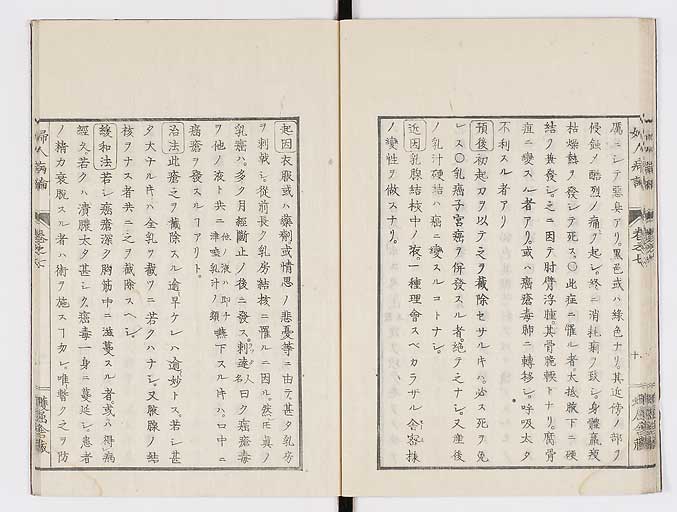 膺ニシテ惡臭アリ。黒色或ハ綠色ナリ。其近傍ノ部ヲ
侵蝕メ酷烈ノ痛ヲ起シ。終ニ消耗痢ヲ致シ。身體羸瘦
枯燥熱ヲ發シテ死ス。〇此症ニ罹ル者。大抵腋下ニ硬
結ヲ兼發シ。之ニ因テ肘臂浮腫。其骨脆軟トナリ。
症ニ變スル者アリ。或ハ癌瘡毒肺ニ轉移シ。呼吸太タ
不利スル者アリ
預後 初起刀ヲ以テ之ヲ截除セサルキハ。必ス死ヲ免
レス〇乳癌子宮癌ヲ併發スル者。絶テ之ナシ。又産後
ノ乳汁硬結ハ癌ニ變スルコトナシ。
近因 乳腺結核中ノ液。一種理會スベカラザル
ノ變性ヲ做スナリ。
起因 衣服或ハ藥劑或情思ノ悲憂等ニ由テ甚タ乳房
ヲ刺戟シ。從前長ク乳房結核ニ罹ルニ因ル。然𪜈眞ノ
乳癌ハ。多ク月經斷止ノ後ニ發ス。剌達名人曰ク癌瘡毒
ヲ他ノ液ト共ニ 他ノ液ハ即チ津唾乳汁ノ類 嚥下スルキハ。口中ニ
癌瘡ヲ發スルヿアリト。
治法 此瘡之ヲ截除スル逾早ケレハ逾妙トス。若シ甚
タ大ナルキハ全乳ヲ截ツニ若クハナシ。又腋腺ノ結
核ヲナス者共ニ之ヲ截除スヘシ。
緩和法 若シ癌瘡深ク胸筋中ニ滋蔓スル者。或ハ得病
經久。若クハ潰膿太タ甚シク。癌毒一身ニ蔓延シ。患者
ノ精力衰脫スル者ハ術ヲ施スヿ勿レ。唯暫ク之ヲ防
婦人病論